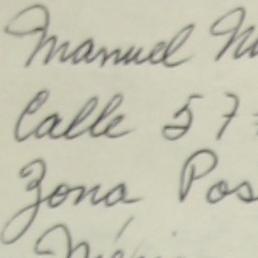 Manuel
Calle 57
Zona Pos